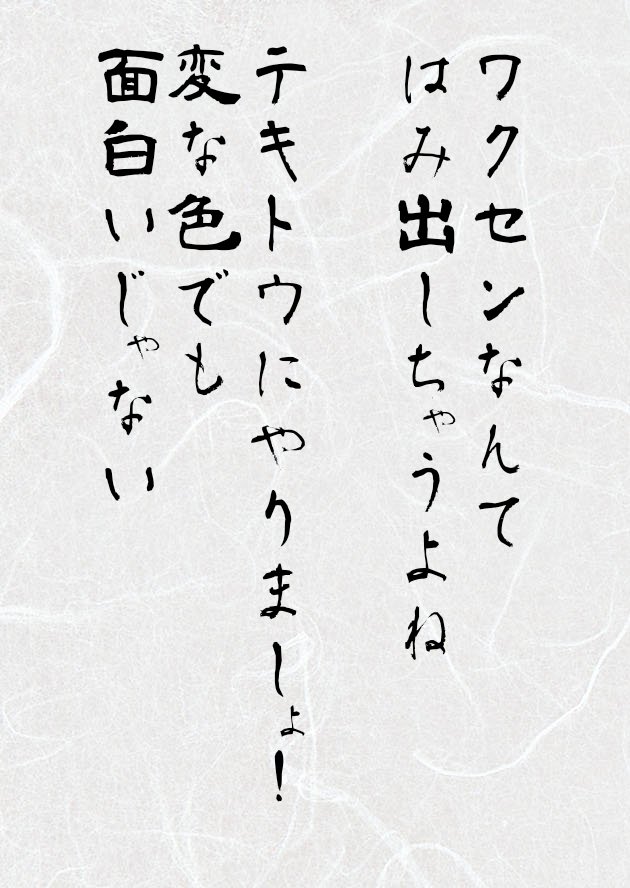 ワクセンなんて
はみ出しちゃうよね
テキトウにやりましょ！
変な色でも
面白いじゃない